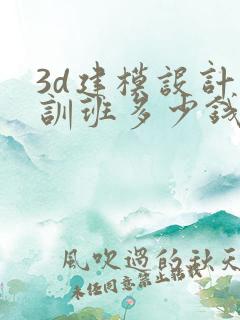 3d建模設計
訓班多少錢
風吹過的秋天
未经同意禁止转载